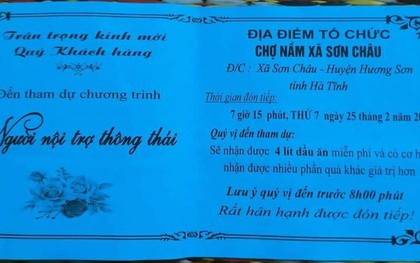 Trân trọng kính mời
Quý Khách hàng
Đến tham dự chương trình
Người nội trợ thông thái
ĐỊA ĐIỂM TỔ CHỨC
CHỢ NẦM XÃ SƠN CHÂU
Đ/C : Xã Sơn Châu - Huyện Hương Sơn
tỉnh Hà Tĩnh
Thời gian đón tiếp:
7 giờ 15 phút, THỨ 7 ngày 25 tháng 2 năm 20
Quý vị đến tham dự:
Sẽ nhận được 4 lít dầu ăn miễn phí và có cơ h
nhận được nhiều phần quà khác giá trị hơn
Lưu ý quý vị đến trước 8h00 phút
Rất hân hạnh được đón tiếp!